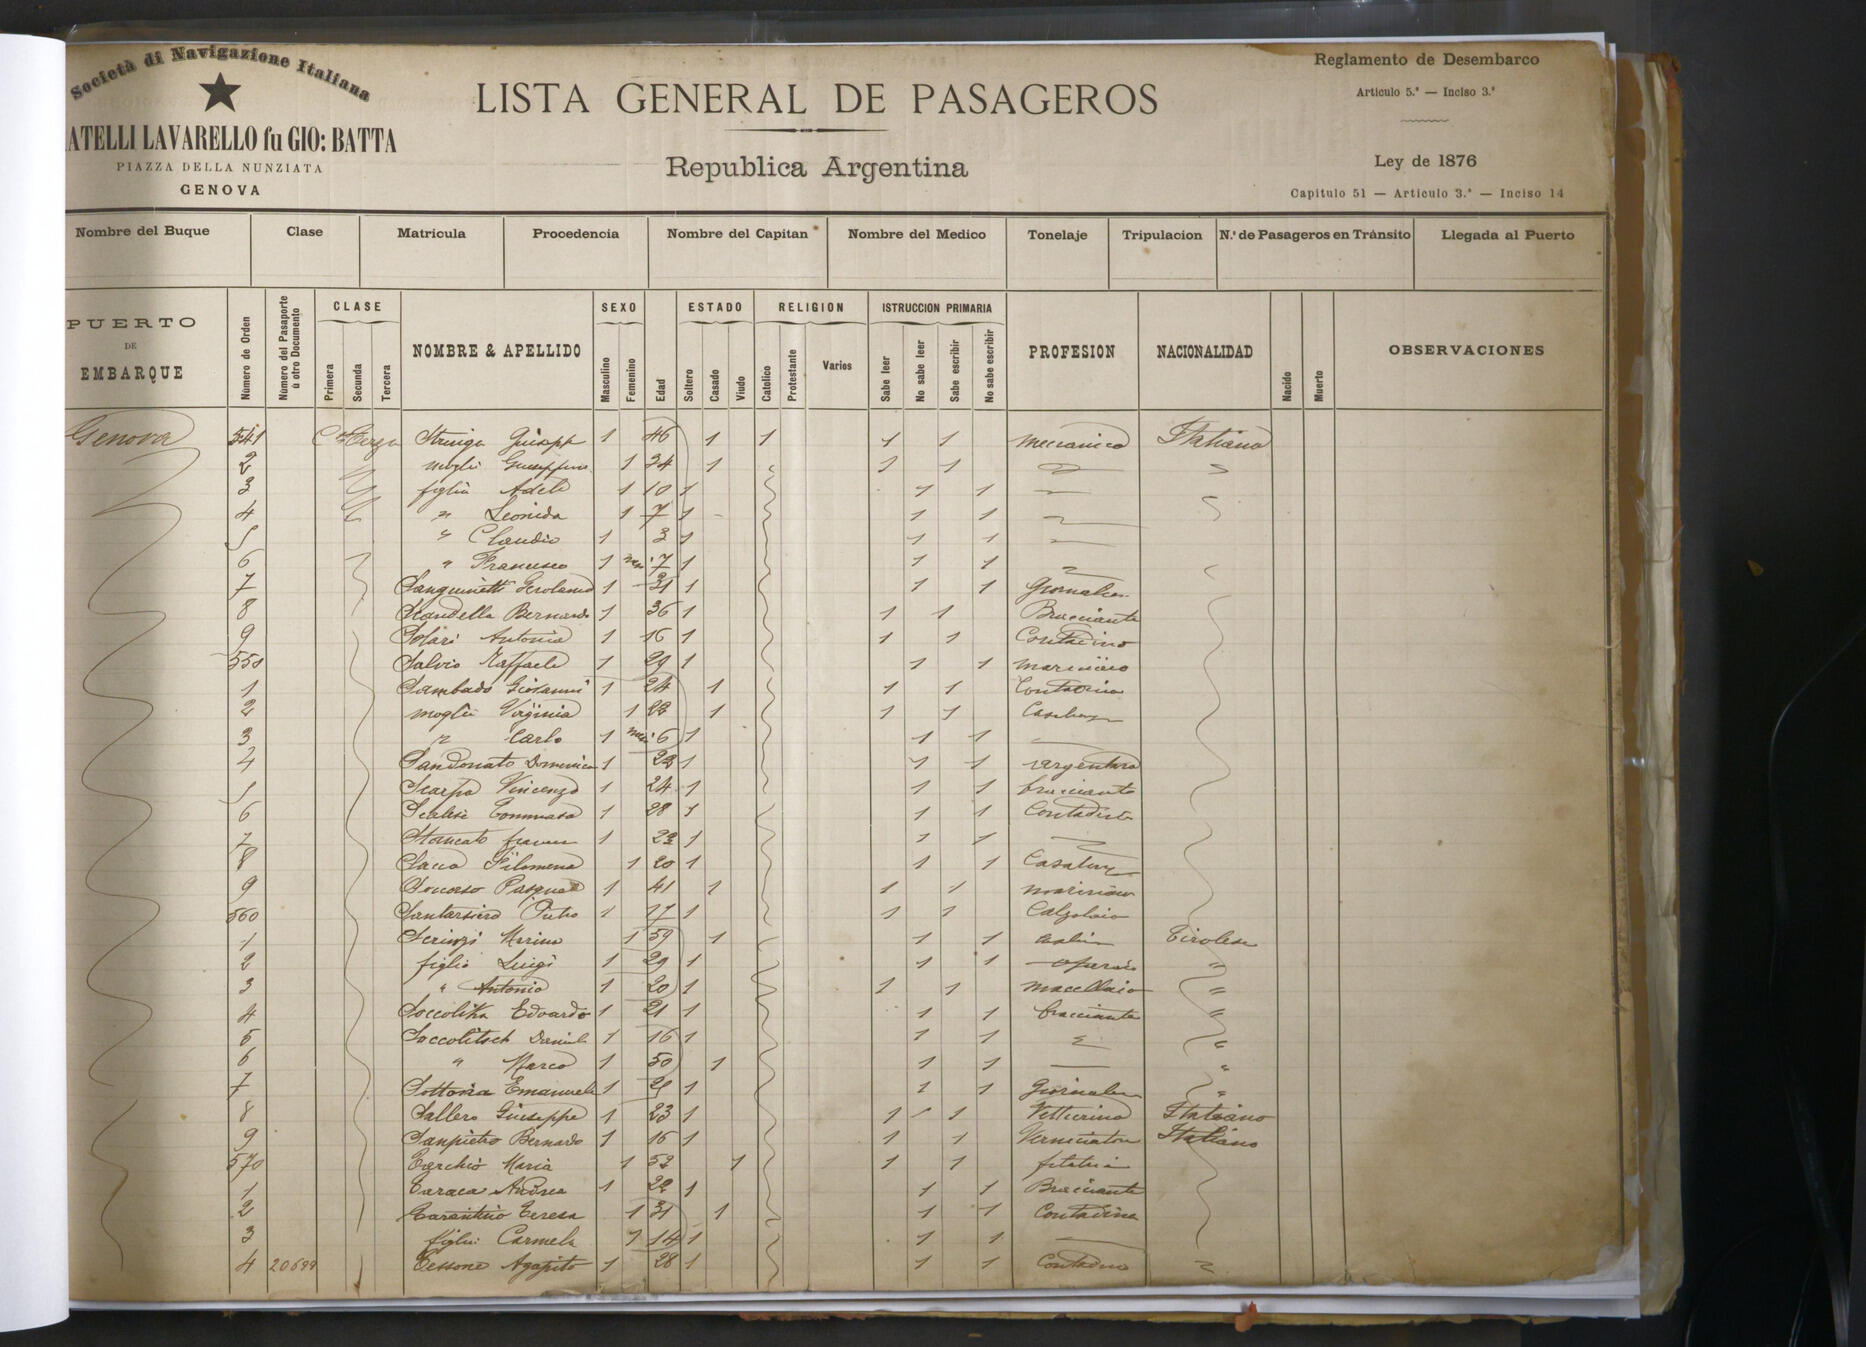 Società di Navigazione Italiana
ATELLI LAVARELLO fu GIO: BATTA
PIAZZA DELLA NUNZIATA
GENOVA
LISTA GENERAL DE PASAGEROS
Republica Argentina
Reglamento de Desembarco
Articulo 5.º — Inciso 3.º
Ley de 1876
Capitulo 51 — Articulo 3.º — Inciso 14
Nombre del Buque Clase Matricula Procedencia Nombre del Capitan Nombre del Medico Tonelaje Tripulacion N.º de Pasageros en Tránsito Llegada al Puerto
PUERTO DE EMBARQUE Número de Orden Número del Pasaporte ù otro Documento CLASE Primera Secunda Tercera NOMBRE & APELLIDO SEXO Masculino Femenino Edad ESTADO Soltero Casado Viudo RELIGION Catolico Protestante Varios ISTRUCCION PRIMARIA Sabe leer No sabe leer Sabe escribir No sabe escribir PROFESION NACIONALIDAD Nacido Muerto OBSERVACIONES
Genova 541 Terza Giuseppe 1 46 1 1 1 1 meccanico Italiana
2 moglie Giuseppina 1 34 1 1 1
3 figlia Adele 1 10 1 1 1
4 " Leonida 1 7 1 1 1
5 " Claudio 1 3 1 1 1
6 " Francesco 1 mesi 7 1 1 1
7 Sanguinetti Gerolamo 1 31 1 1 1
8 Scandella Bernardo 1 36 1 1 1 Bracciante
9 Solari Antonio 1 16 1 1 1 Contadino
550 Salvio Raffaele 1 29 1 1 1 marinaio
1 Sambado Giovanni 1 24 1 1 1 Contadino
2 moglie Virginia 1 1 1 1
3 " Carlo 1 mesi 6 1 1 1
4 Sandonato Domenico 1 1 1 1
5 Scarpa Vincenzo 1 24 1 1 1 bracciante
6 Tommaso 1 28 1 1 1
7 1 1 1 1
8 Sacco Filomena 1 20 1 1 1
9 Soccorso Pasquale 1 41 1 1 1 marinaio
560 Santarsiero Pietro 1 17 1 1 1 Calzolaio
1 Scrinzi Marina 1 59 1 1 1 Tirolese
2 figlio Luigi 1 29 1 1 1 operaio "
3 " Antonio 1 20 1 1 1 macellaio "
4 Edoardo 1 21 1 1 1 bracciante "
5 Soccolitsch Daniele 1 16 1 1 1 "
6 " Marco 1 50 1 1 1 "
7 Emanuele 1 1 1 1 "
8 Sallero Giuseppe 1 23 1 1 1 1 Vetturino Italiano
9 Sanpietro Bernardo 1 16 1 1 1 Verniciatore Italiano
570 Maria 1 52 1 1 1
1 Andrea 1 1 1 1 Bracciante
2 Tarantino Teresa 1 31 1 1 1 Contadina
3 figlia Carmela 1 14 1 1 1
4 20699 Tessone Agapito 1 28 1 1 1 Contadino